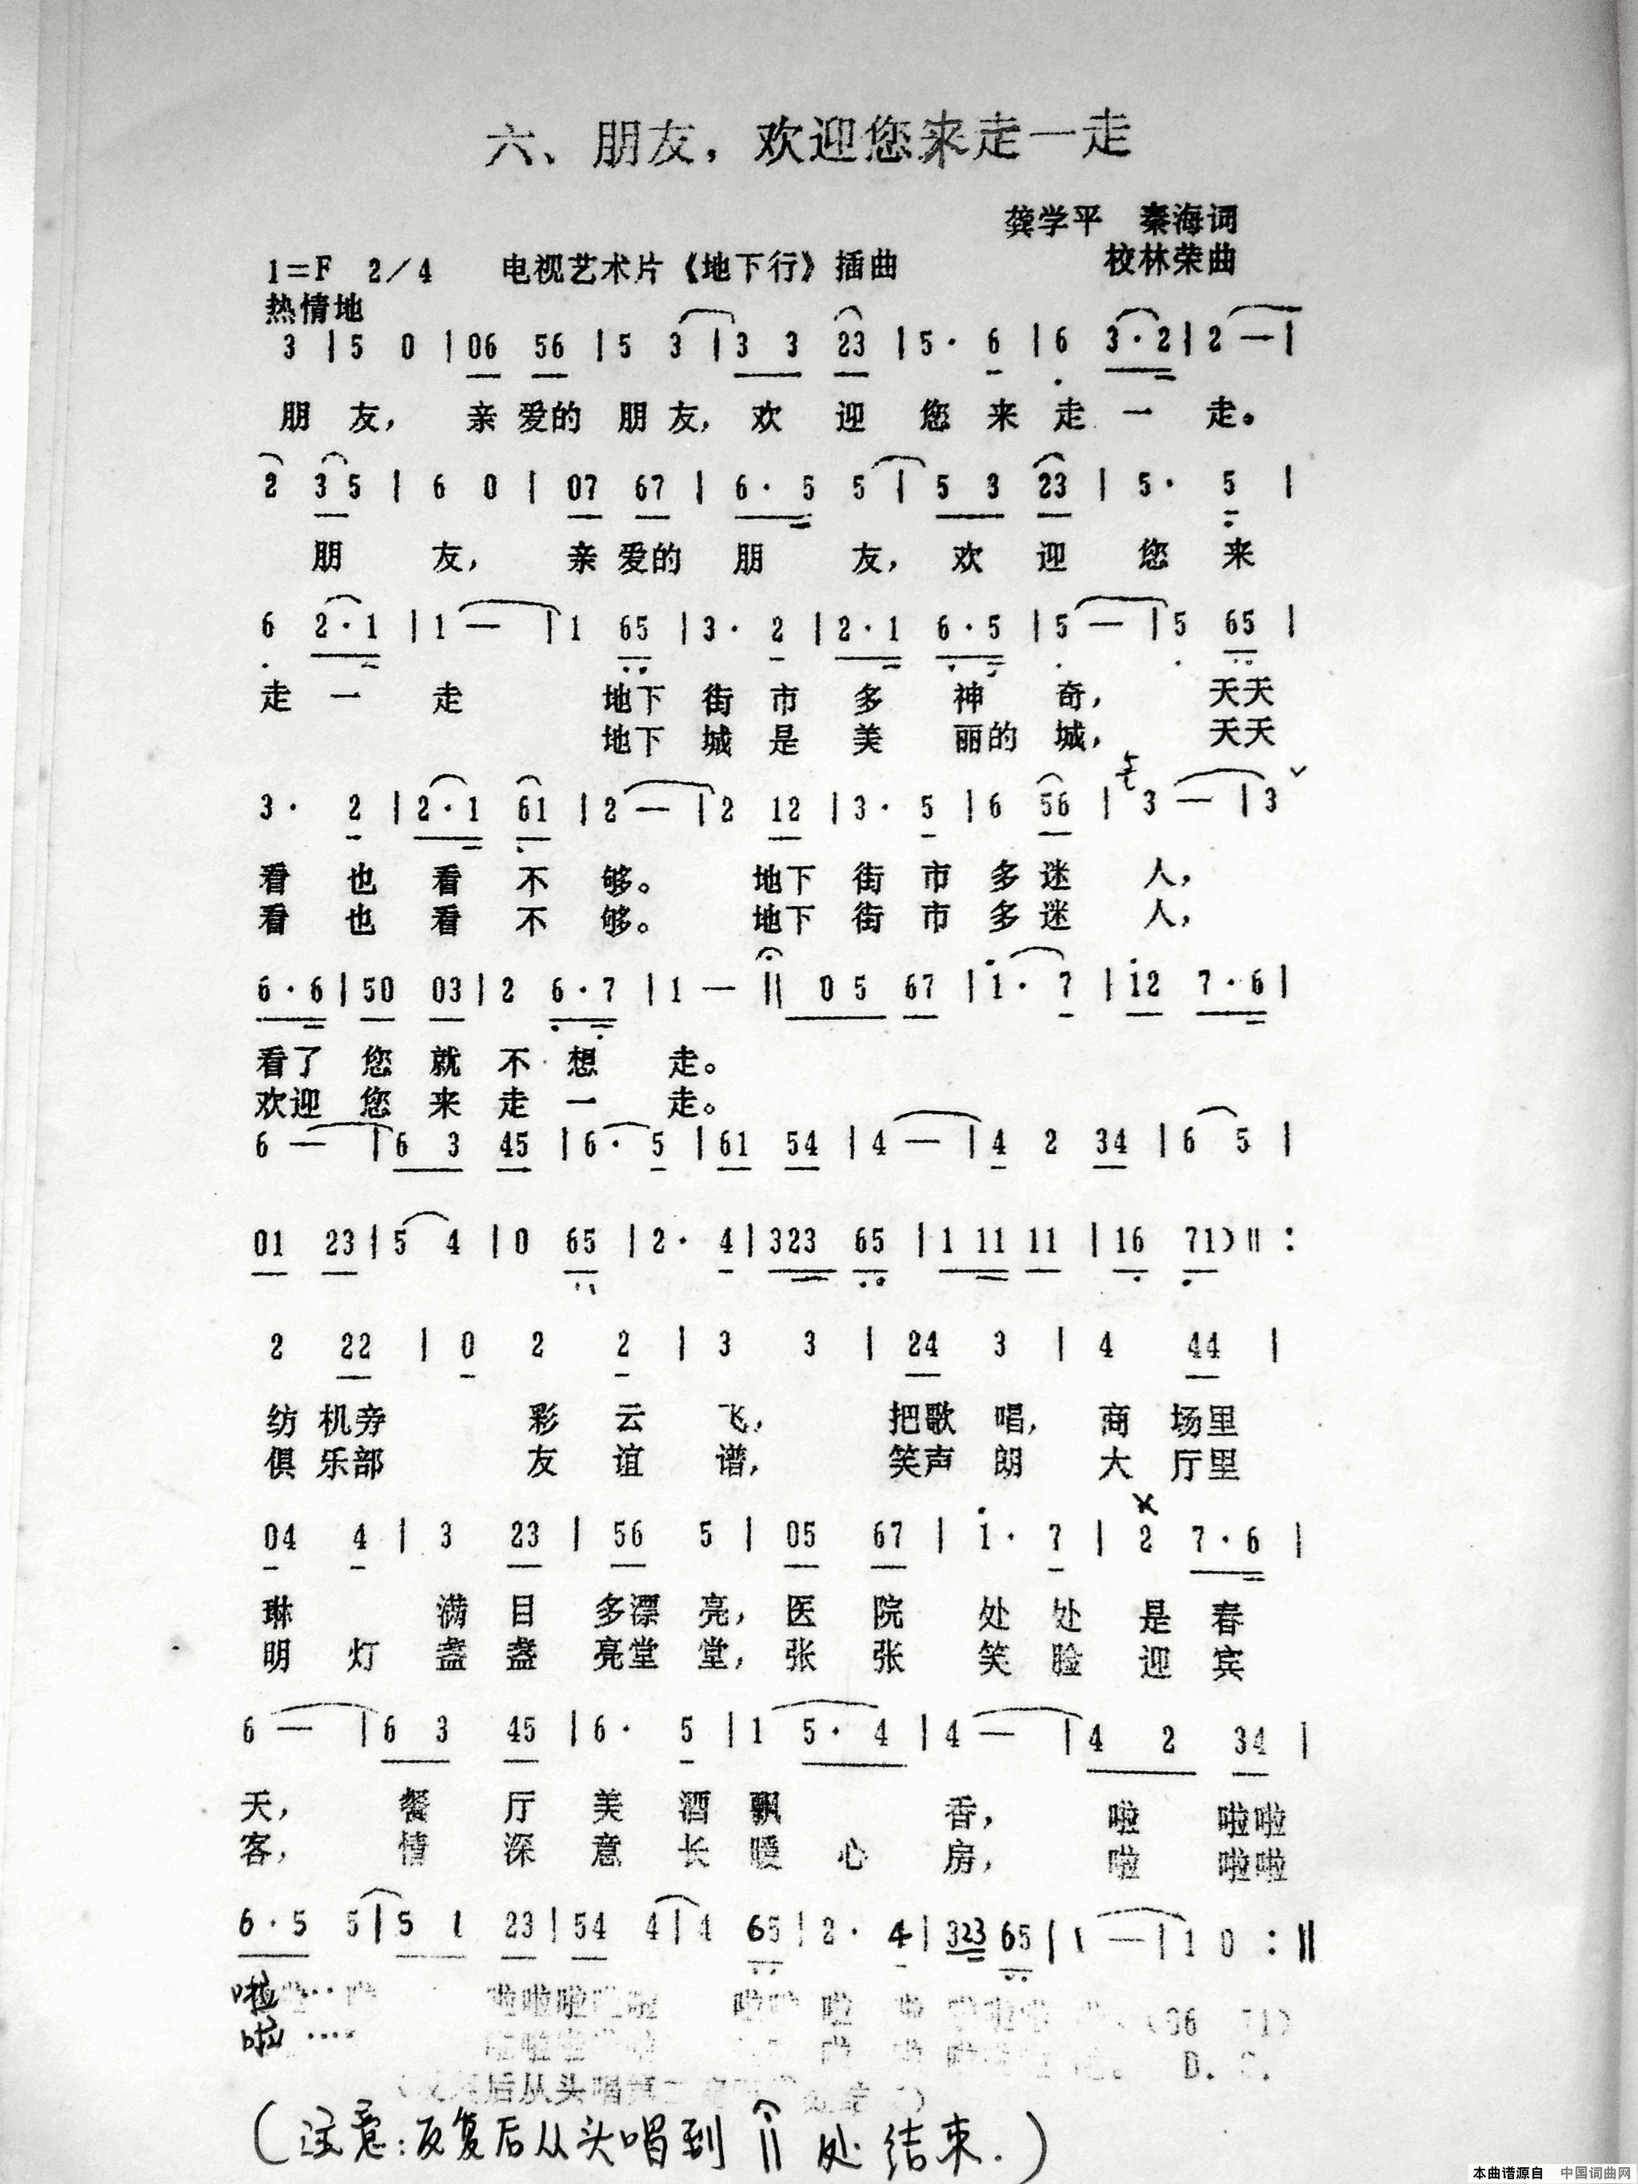 六、朋友，欢迎您来走一走
龚学平 秦海词
1=F 2/4 电视艺术片《地下行》插曲 校林荣曲
热情地
3 | 5 0 | 06 56 | 5 3 | 3 3 23 | 5· 6 | 6 3·2 | 2 — |
朋 友， 亲 爱的 朋 友， 欢 迎 您 来 走 一 走。
2 35 | 6 0 | 07 67 | 6·5 5 | 5 3 23 | 5· 5 |
朋 友， 亲 爱的 朋 友， 欢 迎 您 来
6 2·1 | 1 — | 1 65 | 3· 2 | 2·1 6·5 | 5 — | 5 65 |
走 一 走 地下 街 市 多 神 奇， 天天
地下 城 是 美 丽的 城， 天天
3· 2 | 2·1 61 | 2 — | 2 12 | 3· 5 | 6 56 | 3 — | 3
看 也 看 不 够。 地下 街 市 多 迷 人，
看 也 看 不 够。 地下 街 市 多 迷 人，
6·6 | 50 03 | 2 6·7 | 1 — || 0 5 67 | 1· 7 | 12 7·6 |
看了 您 就 不 想 走。
欢迎 您 来 走 一 走。
6 — | 6 3 45 | 6· 5 | 61 54 | 4 — | 4 2 34 | 6 5 |
01 23 | 5 4 | 0 65 | 2· 4 | 323 65 | 1 11 11 | 16 71) || :
2 22 | 0 2 2 | 3 3 | 24 3 | 4 44 |
纺 机旁 彩 云 飞， 把歌 唱， 商 场里
俱 乐部 友 谊 谱， 笑声 朗 大 厅里
04 4 | 3 23 | 56 5 | 05 67 | 1· 7 | 2 7·6 |
琳 满 目 多漂 亮， 医 院 处 处 是 春
明 灯 盏 盏 亮堂 堂， 张 张 笑 脸 迎 宾
6 — | 6 3 45 | 6· 5 | 1 5·4 | 4 — | 4 2 34 |
天， 餐 厅 美 酒 飘 香， 啦 啦啦
客， 情 深 意 长 暖 心 房， 啦 啦啦
6·5 5 | 5 1 23 | 54 4 | 4 65 | 2· 4 | 323 65 | 1 — | 1 0 : ||
啦 ··· 啦啦啦
啦 ····
后从头唱
(注意：反复后从头唱到 || 处结束.)
本曲谱源自 中国词曲网